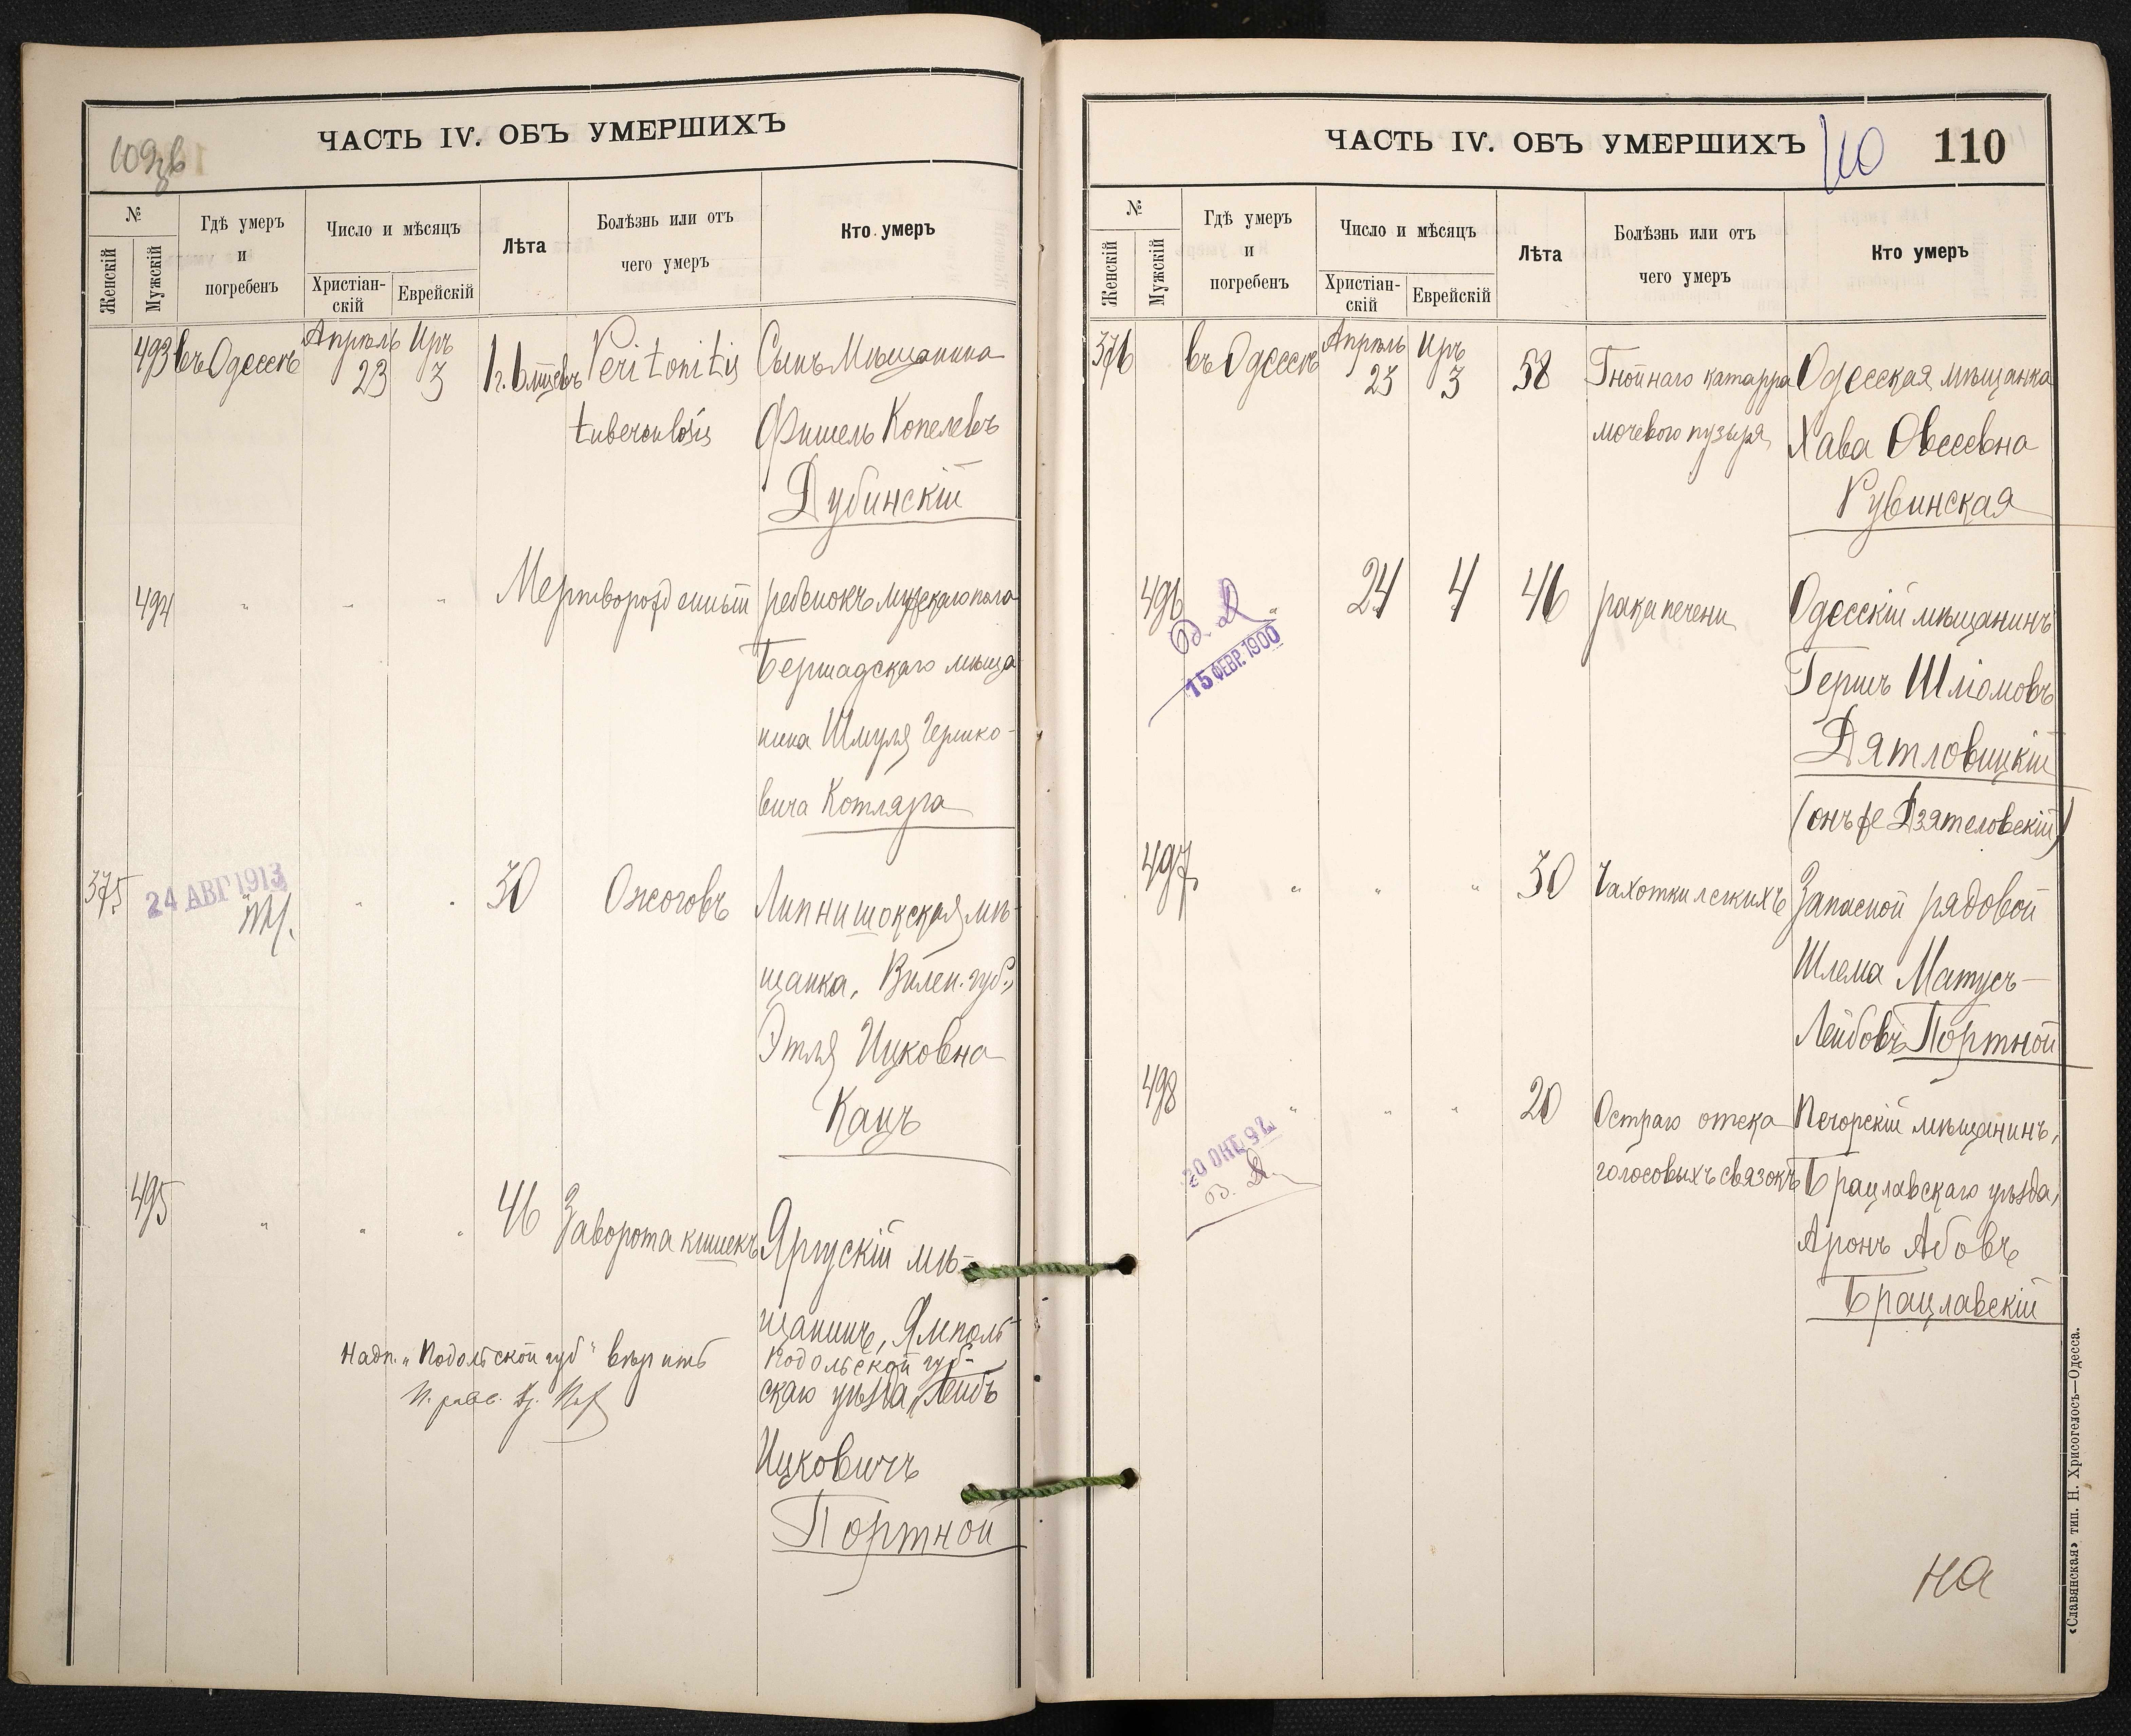 ЧАСТЬ IV. ОБЪ УМЕРШИХЪ
№
Женскій
Мужскій
Гдѣ умеръ
и
погребенъ
Число и мѣсяцъ
Христіан-
скій
Еврейскій
Лѣта
Болѣзнь или отъ
чего умеръ
Кто умеръ
493 въ Одессѣ Апрѣль 23 Иръ 3 1 г. 6 мцевъ Peritonitis Сынъ Мѣщанина
tuberculosis Фишель Копелевъ
Дубинскій
494 " " " Мертворожденный ребенокъ мужскаго пола
Бершадскаго мѣща
нина Шмуля Гершко-
вича Котляра
375 24 АВГ 1913 " " 30 Ожоговъ Липнишокская мѣ-
щанка, Вилен. губ.,
Этля Ицковна
Кацъ
495 " " " 46 Заворота кишекъ Яругскій мѣ-
щанинъ, Ямполь-
Подольской губ-
скаго уѣзда, Лейбъ
Надп. "Подольской губ" вѣрить
Ицковичъ
Портной
ЧАСТЬ IV. ОБЪ УМЕРШИХЪ 110 110
№
Женскій
Мужскій
Гдѣ умеръ
и
погребенъ
Число и мѣсяцъ
Христіан-
скій
Еврейскій
Лѣта
Болѣзнь или отъ
чего умеръ
Кто умеръ
376 въ Одессѣ Апрѣль 23 Иръ 3 58 Гнойнаго катарра Одесская мѣщанка
мочевого пузыря Хава Овсеевна
Рувинская
496 " 24 4 46 рака печени Одесскій мѣщанинъ
15 ФЕВР. 1900
Гершъ Шліомовъ
Дятловицкій
(онъ же Дзятеловскій)
497 " " " 30 Чахотки легкихъ Запасной рядовой
Шлема Матусъ-
Лейбовъ Портной
498 " " " 20 Остраго отека Печорскій мѣщанинъ,
20 ОКТ 92
голосовыхъ связокъ Брацлавскаго уѣзда,
Аронъ Абовъ
Брацлавскій
на
«Славянская» тип. Н. Хрисогелосъ—Одесса.